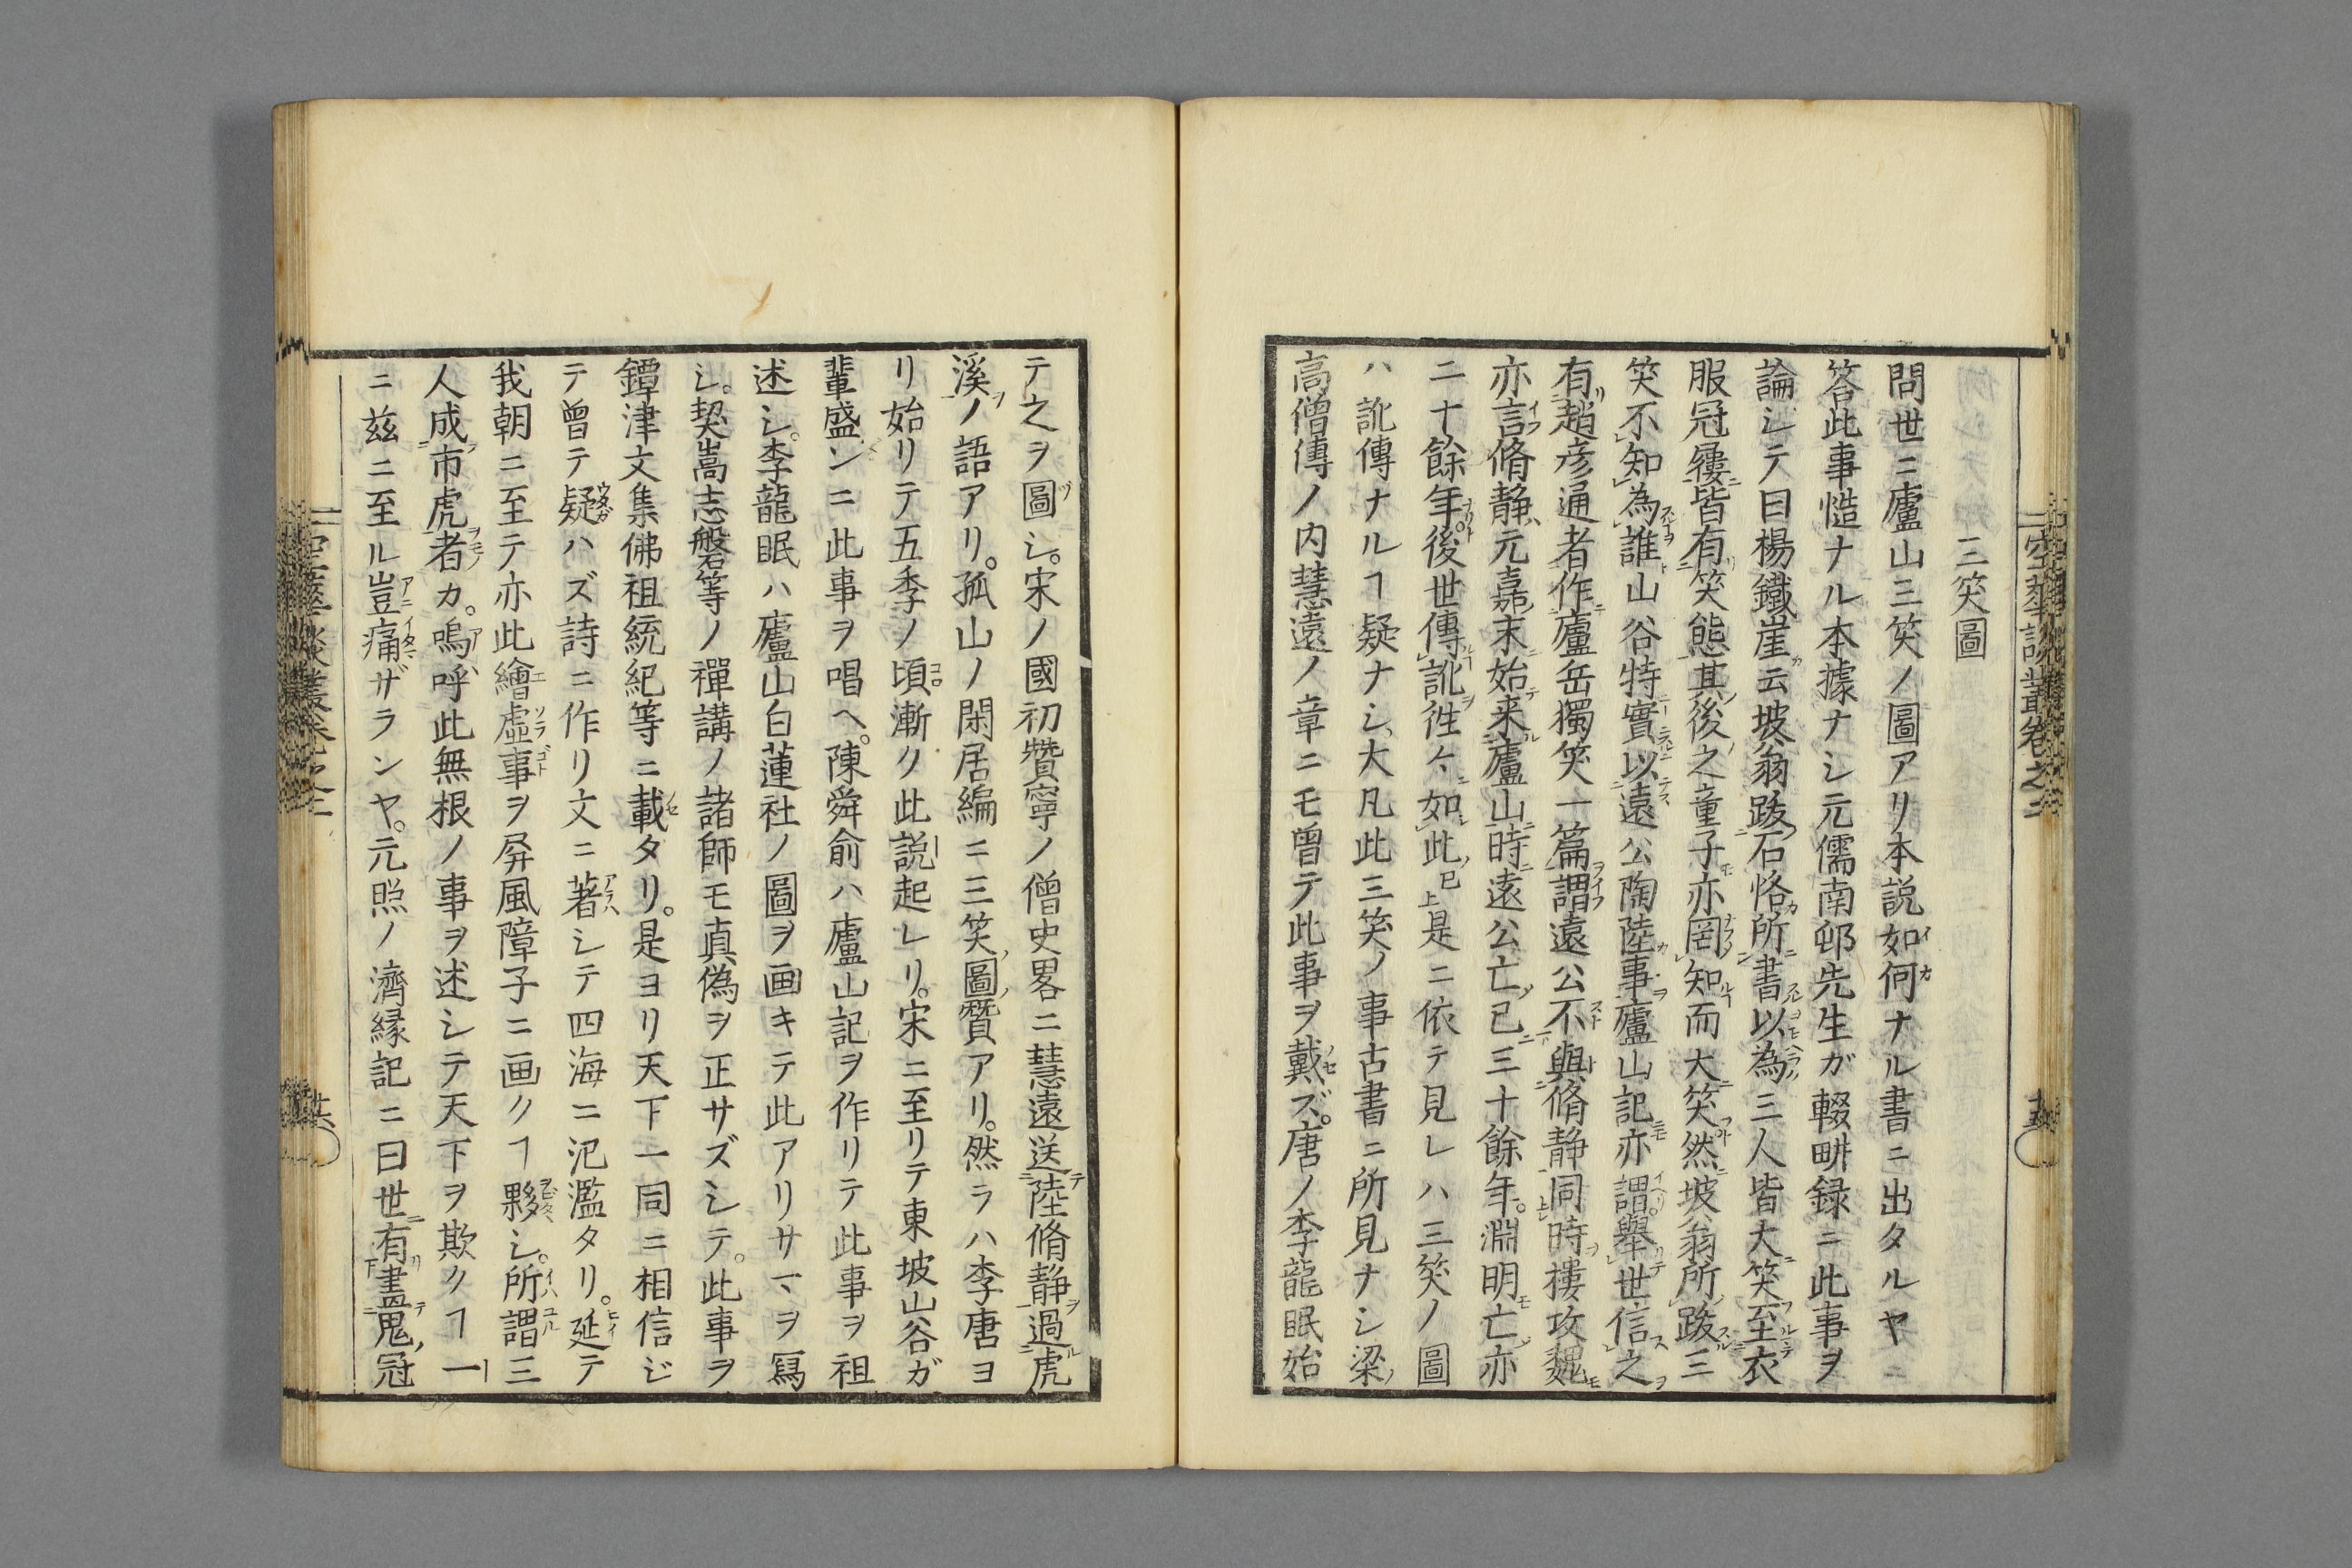 三笑圖
問世ニ廬山三笑ノ圖アリ本説如何ナル書ニ出タルヤ
答此事慥ナル本據ナシ元儒南邨先生ガ輟畊録ニ此事ヲ
論シテ曰楊鐵崖云坡翁跋石恪所書以為三人皆大笑至衣
服冠履皆有笑態其後之童子亦罔知而大笑然坡翁所跋三
笑不知為誰山谷特實以遠公陶陸事廬山記亦謂舉世信之
有趙彦通者作廬岳獨笑一篇謂遠公不與脩静同時樓攻媿
亦言脩静元嘉末始来廬山時遠公亡已三十餘年。淵明亡亦
二十餘年。後世傳訛徃々如此已上是ニ依テ見レハ三笑ノ圖
ハ訛傳ナルヿ疑ナシ大凡此三笑ノ事古書ニ所見ナシ梁
高僧傳ノ内慧遠ノ章ニモ曽テ此事ヲ戴ズ。唐ノ李龍眠始
テ之ヲ圖シ。宋ノ國初贊寧ノ僧史畧ニ慧遠送陸脩静過虎
溪ノ語アリ。孤山ノ閑居編ニ三笑圖贊アリ。然ラハ李唐ヨ
リ始リテ五季ノ頃漸ク此説起レリ。宋ニ至リテ東坡山谷ガ
輩盛ンニ此事ヲ唱ヘ。陳舜俞ハ廬山記ヲ作リテ此事ヲ祖
述シ。李龍眠ハ廬山白蓮社ノ圖ヲ画キテ此アリサヽヲ冩
シ。契嵩志磐等ノ禪講ノ諸師モ真偽ヲ正サズシテ。此事ヲ
鐔津文集佛祖統紀等ニ載タリ。是ヨリ天下一同ニ相信ジ
テ曽テ疑ハズ詩ニ作リ文ニ著シテ四海ニ汜濫タリ。延テ
我朝ニ至テ亦此繪虚事ヲ屏風障子ニ画クヿ夥シ。所謂三
人成市虎者カ。嗚呼此無根ノ事ヲ述シテ天下ヲ欺クヿ一
ニ兹ニ至ル豈痛ザランヤ。元照ノ濟縁記ニ曰世有畫鬼冠